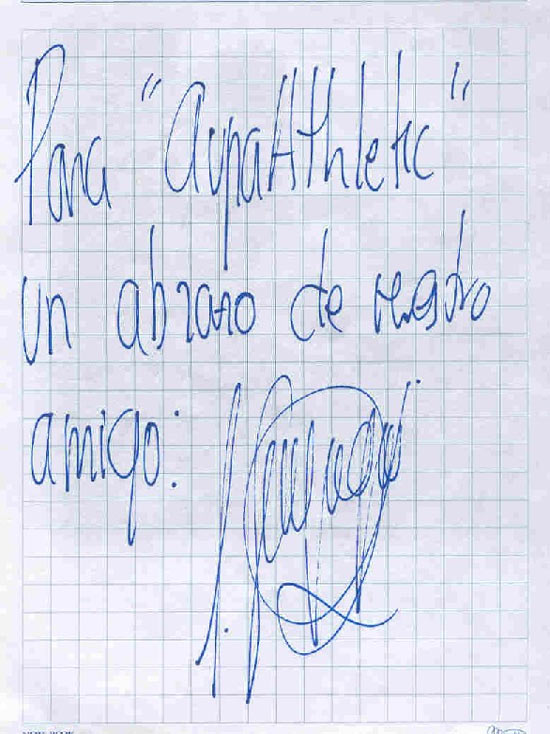 Para "AupaAthletic"
un abrazo de vuestro
amigo: